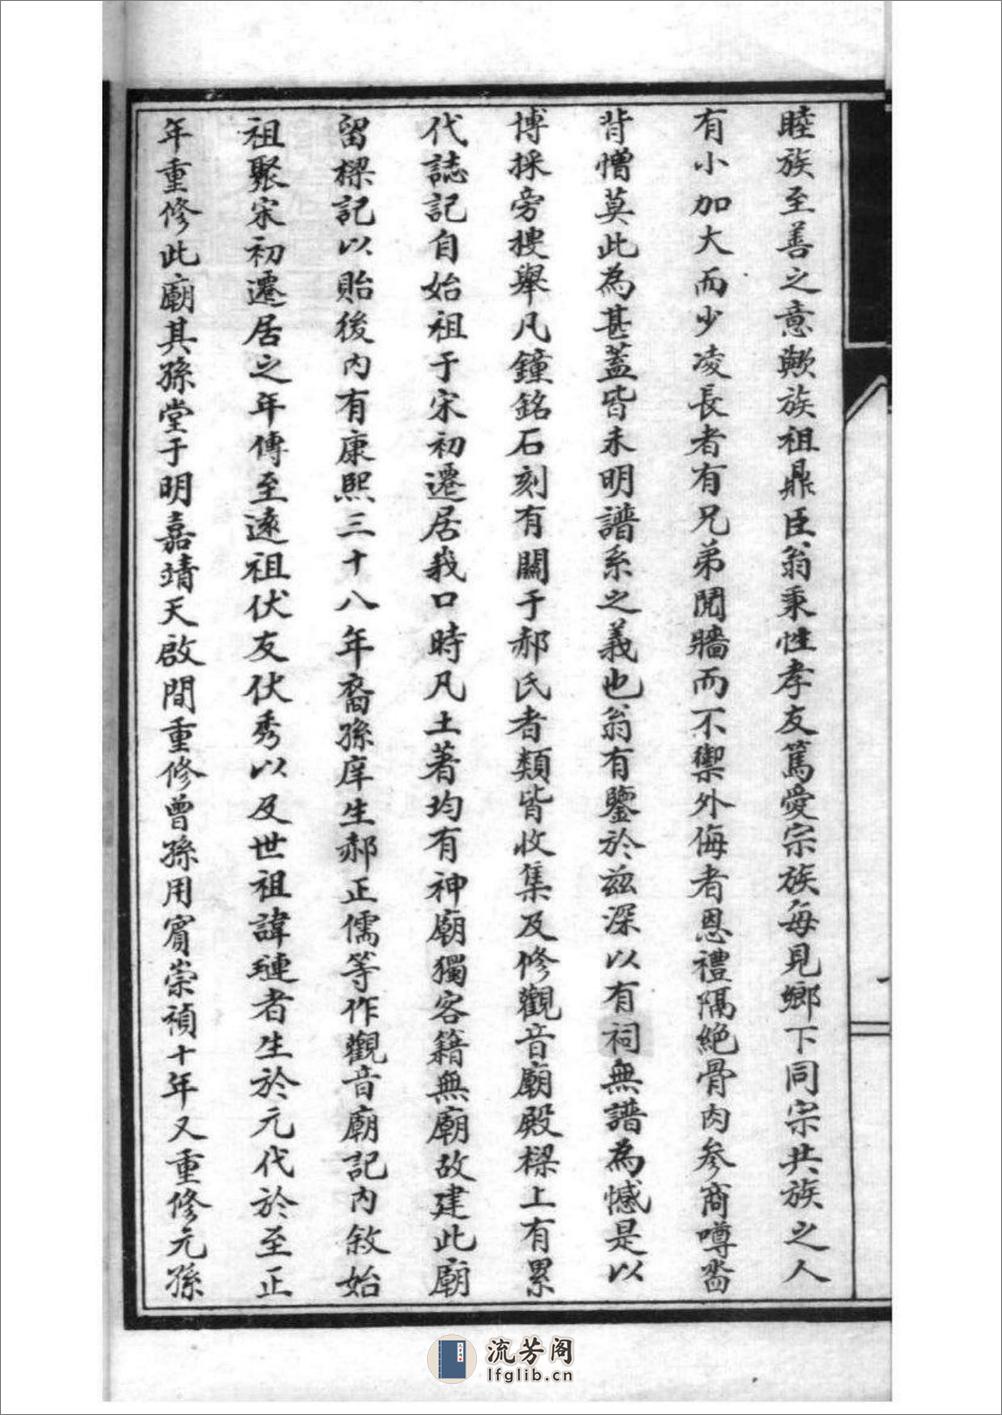 睦族至善之意歟族祖鼎臣翁秉性孝友篤愛宗族每見鄉下同宗共族之人
有小加大而少凌長者有兄弟鬩牆而不禦外侮者恩禮隔絶骨肉參商噂沓
背憎莫此為甚蓋皆未明譜系之義也翁有鑒於茲深以有祠無譜為憾是以
博採旁搜舉凡鐘銘石刻有關于郝氏者類皆收集及修觀音廟殿樑上有累
代誌記自始祖于宋初遷居我口時凡土著均有神廟獨客籍無廟故建此廟
留樑記以貽後內有康熙三十八年裔孫庠生郝正儒等作觀音廟記內敘始
祖聚宋初遷居之年傳至遠祖伏友伏秀以及世祖諱璉者生於元代於至正
年重修此廟其孫堂于明嘉靖天啟間重修曾孫用賓崇禎十年又重修元孫
流芳阁
lfglib.cn